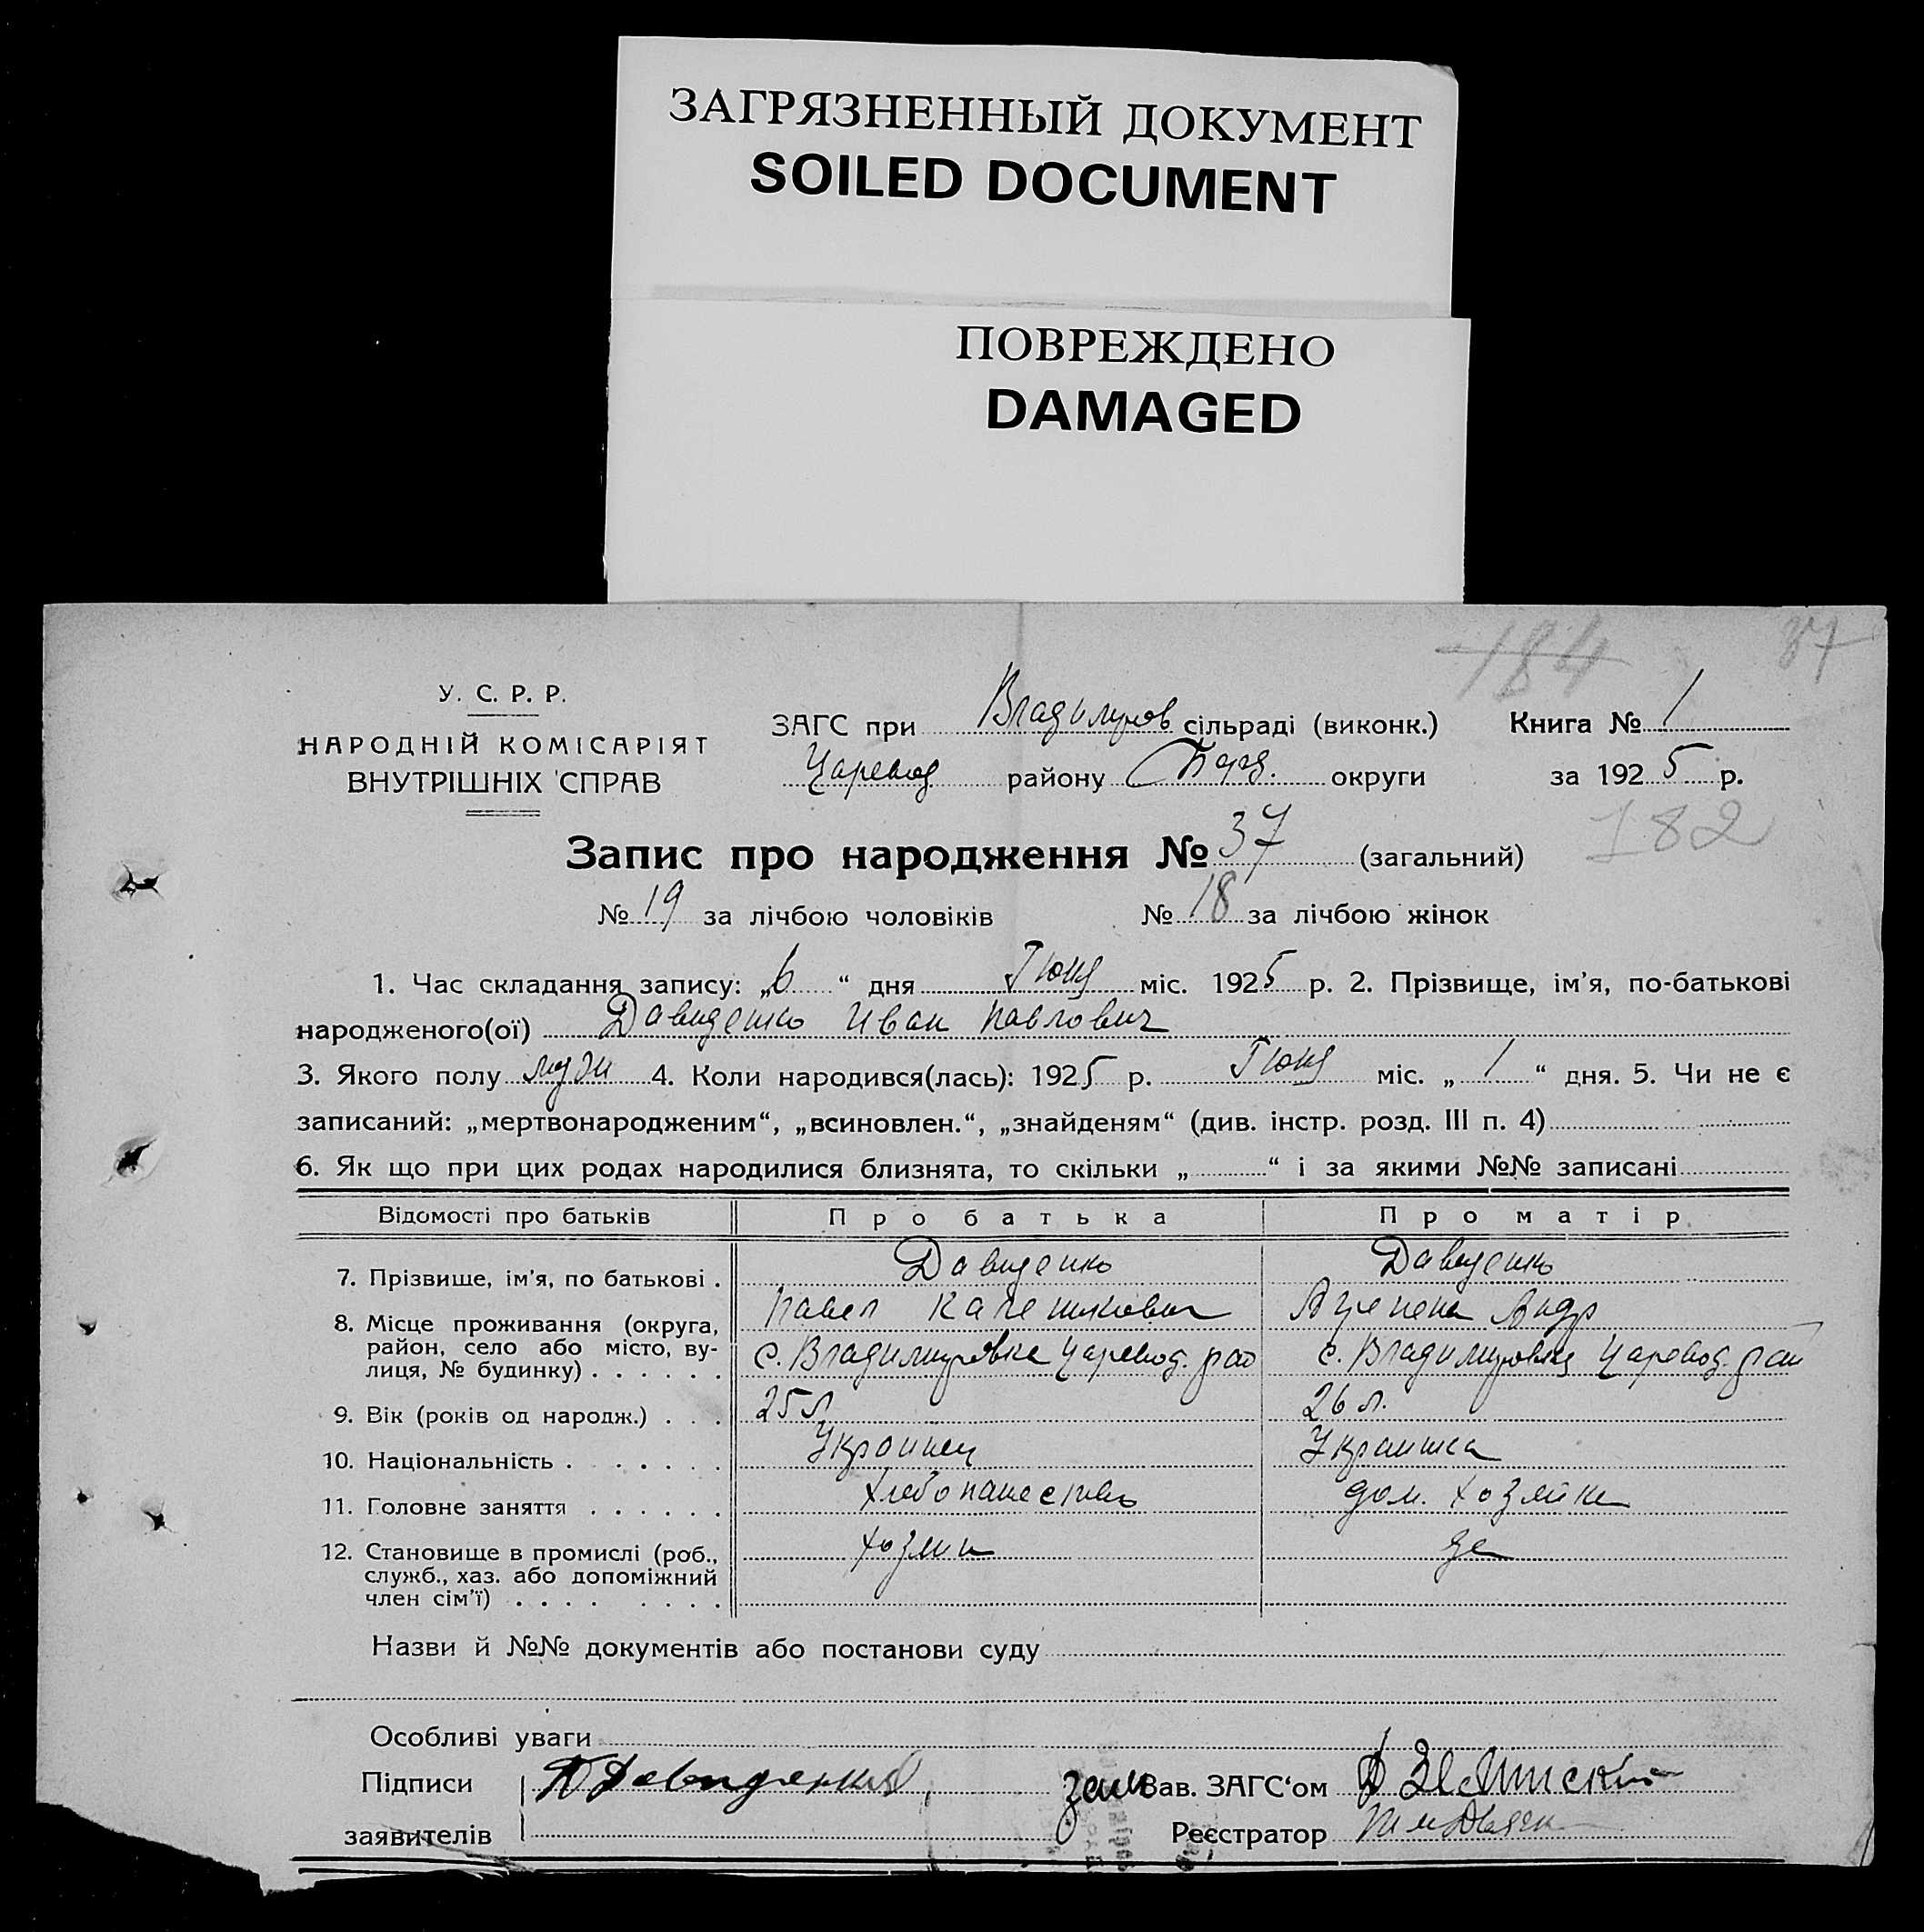 ЗАГРЯЗНЕННЫЙ ДОКУМЕНТ
SOILED DOCUMENT
ПОВРЕЖДЕНО
DAMAGED
184 37
У. С. Р. Р.
НАРОДНІЙ КОМІСАРІЯТ
ВНУТРІШНІХ СПРАВ
ЗАГС при Владимиров сільраді (виконк.) Книга № 1
Царевод району Берд. округи за 1925 р.
182
Запис про народження № 37 (загальний)
№ 19 за лічбою чоловіків № 18 за лічбою жінок
1. Час складання запису: „6“ дня Июня міс. 1925 р. 2. Прізвище, ім’я, по-батькові
народженого(ої) Давиденко Иван Павлович
3. Якого полу 4. Коли народився(лась): 1925 р. Июня міс. „1“ дня. 5. Чи не є
записаний: „мертвонародженим“, „всиновлен.“, „знайденям“ (див. інстр. розд. III п. 4)
6. Як що при цих родах народилися близнята, то скільки „ “ і за якими №№ записані
Відомості про батьків Про батька Про матір
7. Прізвище, ім’я, по батькові . Давиденко Давиденко
Павел Андр
8. Місце проживання (округа, район, село або місто, вулиця, № будинку) . . . . . . с. Владимировка Царевод. рай с. Владимировка Царевод. рай
9. Вік (років од народж.) . . . 25 л. 26 л.
10. Національність . . . . . . Украинец Украинка
11. Головне заняття . . . . . . Хлебопашество дом. хозяйка
12. Становище в промислі (роб., служб., хаз. або допоміжний член сім’ї) . . . . . . . . хозяин
Назви й №№ документів або постанови суду
Особливі уваги
Підписи П Давиденко зам Зав. ЗАГС‘ом
заявителів Реєстратор